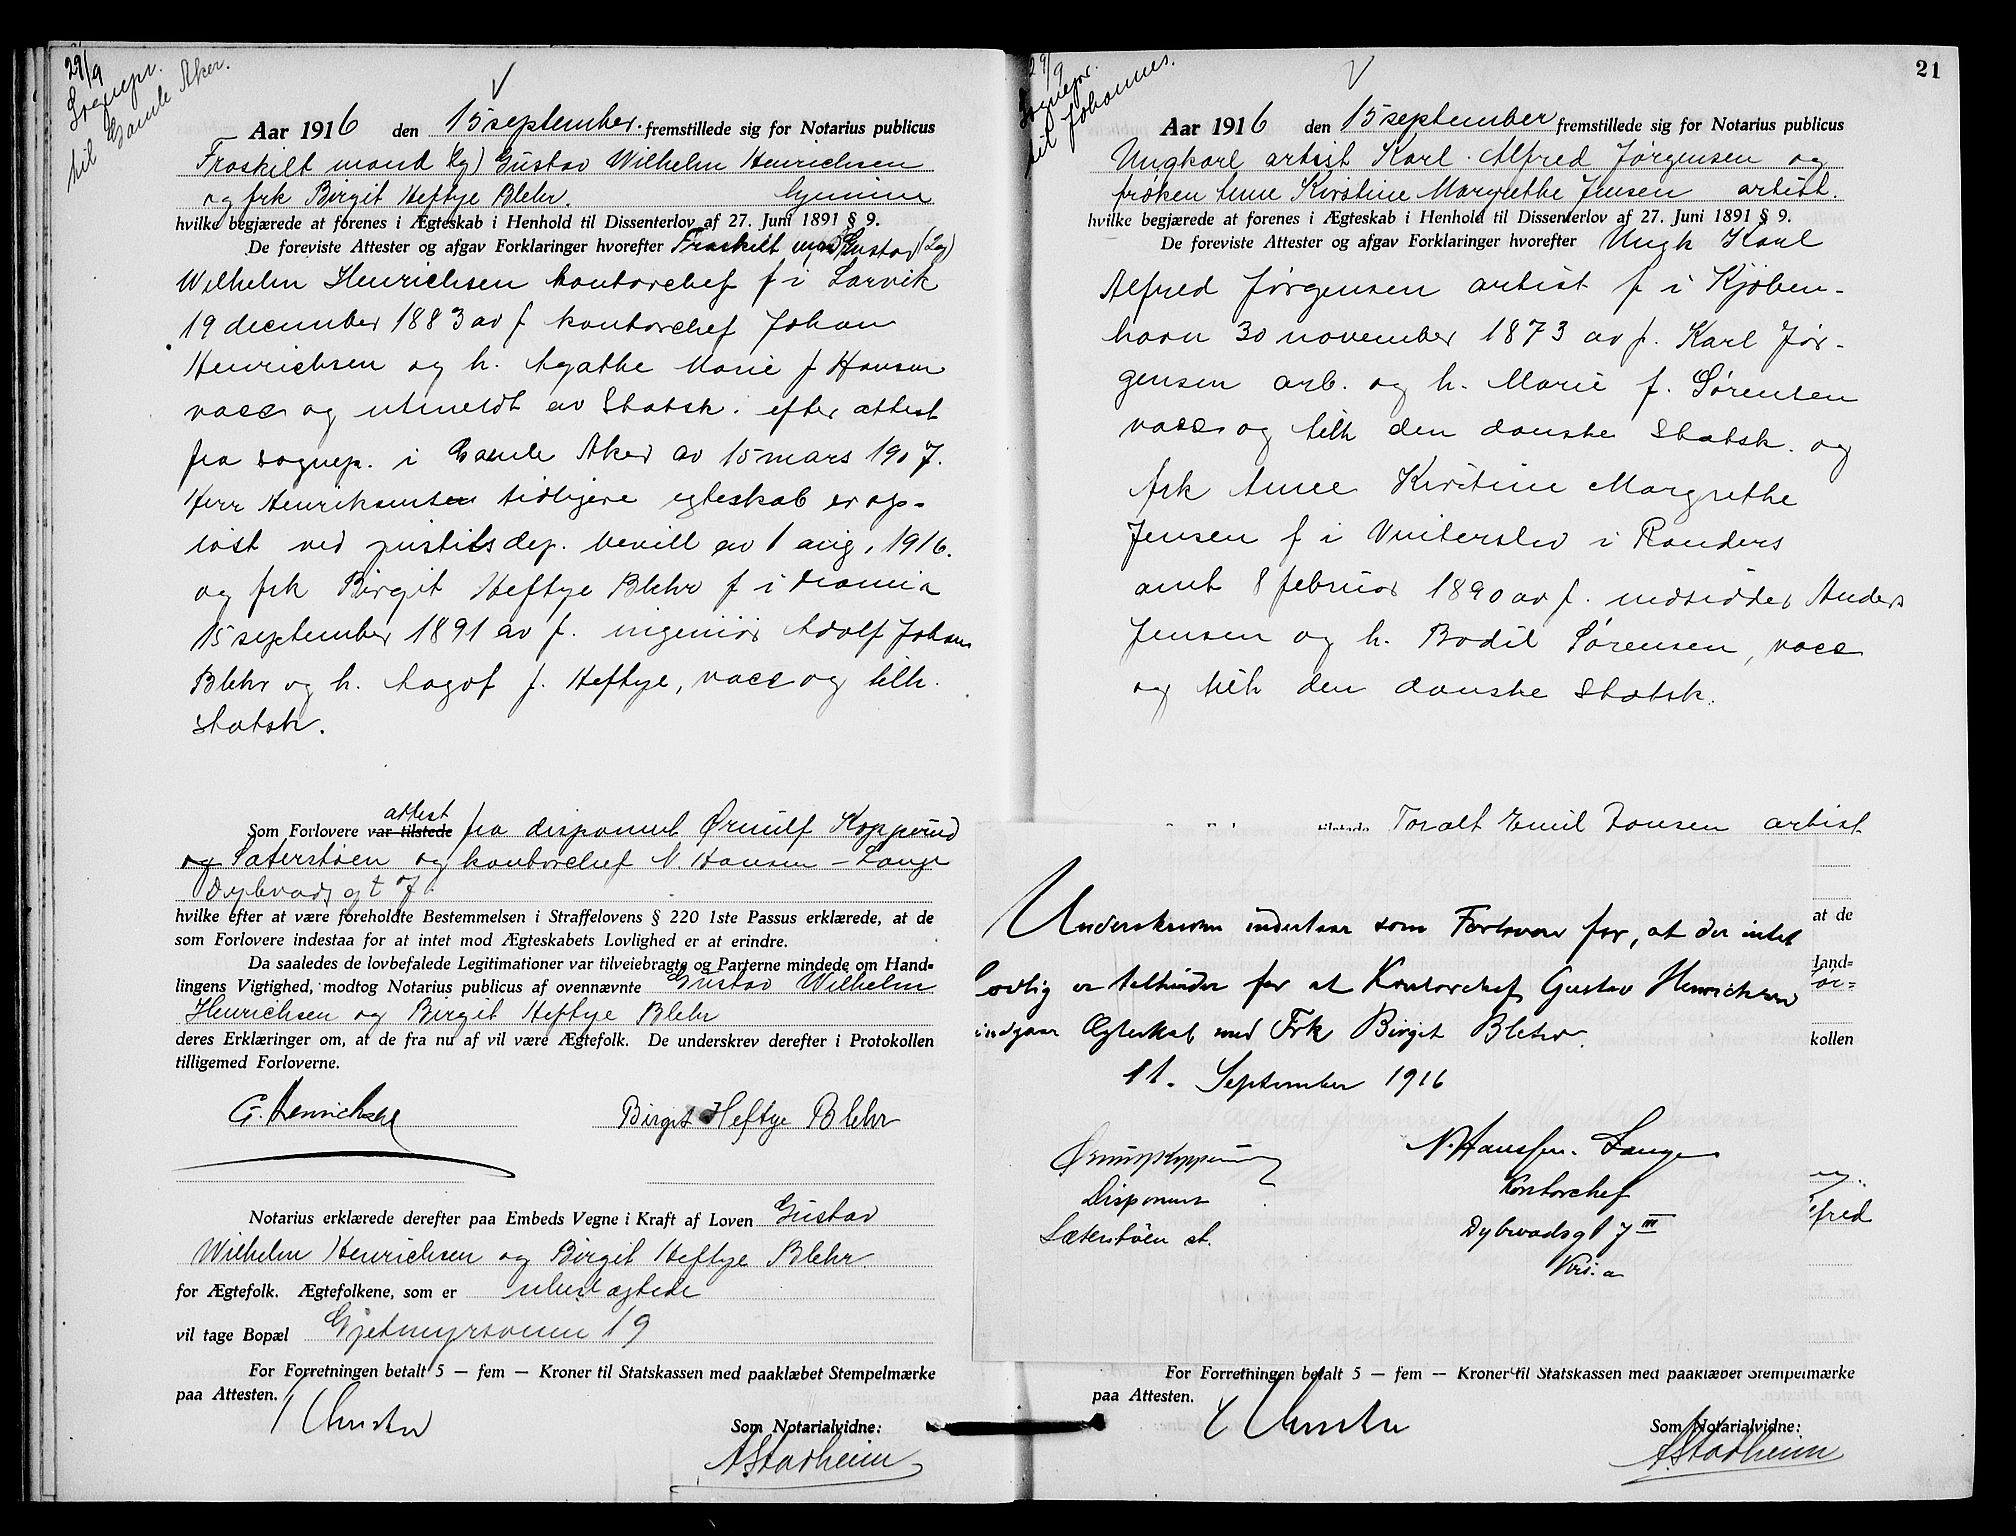 29/9
Sognepr.
til Gamle Aker.
Aar 1916 den 15 september. fremstillede sig for Notarius publicus
Fraskilt mand Gustav Wilhelm Henrichsen
og frk Birgit Heftye Blehr.
hvilke begjærede at forenes i Ægteskab i Henhold til Dissenterlov af 27. Juni 1891 § 9.
De foreviste Attester og afgav Forklaringer hvorefter Fraskilt mand Gustav
Wilhelm Henrichsen kontorchef f i Larvik
19 december 1883 av f kontorchef Johan
Henrichsen og h. Agathe Marie f Hansen
vacc og utmeldt av Statsk. efter attest
fra sognep. i Gamle Aker av 15 mars 1907.
Herr Henriksens tidligere egteskab er op-
løst ved justitsdep. bevill av 1 aug. 1916.
og frk Birgit Heftye Blehr f i
15 september 1891 av f. ingeniør Adolf Johan
Blehr og h. Aagot f. Heftye, vacc og tilh.
Statsk.
Som Forlovere var tilstede attest fra disponent Ørnulf Koppvind
og Sæterstøen og kontorchef N. Hansen-Lange
Dybvadsgt 7.
hvilke efter at være foreholdte Bestemmelsen i Straffelovens § 220 1ste Passus erklærede, at de
som Forlovere indestaa for at intet mod Ægteskabets Lovlighed er at erindre.
Da saaledes de lovbefalede Legitimationer var tilveiebragte og Parterne mindede om Hand-
lingens Vigtighed, modtog Notarius publicus af ovennævnte Gustav Wilhelm
Henrichsen og Birgit Heftye Blehr
deres Erklæringer om, at de fra nu af vil være Ægtefolk. De underskrev derefter i Protokollen
tilligemed Forloverne.
G. Henrichsen Birgit Heftye Blehr
Notarius erklærede derefter paa Embeds Vegne i Kraft af Loven Gustav
Wilhelm Henrichsen og Birgit Heftye Blehr
for Ægtefolk. Ægtefolkene, som er ubeslægtede
vil tage Bopæl Gjetmyrsveien 19
For Forretningen betalt 5 — fem — Kroner til Statskassen med paaklæbet Stempelmærke
paa Attesten.
Som Notarialvidne:
AStadheim
21
29/9
Sognepr.
til Johannes.
Aar 1916 den 15 september fremstillede sig for Notarius publicus
Ungkarl artist Karl Alfred Jørgensen og
frøken Anne Kirstine Margrethe Jensen artist.
hvilke begjærede at forenes i Ægteskab i Henhold til Dissenterlov af 27. Juni 1891 § 9.
De foreviste Attester og afgav Forklaringer hvorefter Ungk Karl
Alfred Jørgensen artist f i Kjøben-
havn 30 november 1873 av f. Karl Jør-
gensen arb. og h. Marie f. Sørensen
vacc og tilh den danske Statsk. og
frk Anne Kirstine Margrethe
Jensen f i Vinterslev i Randers
amt 8 februar 1890 av f. indsidder Anders
Jensen og h. Bodil Sørensen, vacc
og tilh den danske Statsk.
tilstede Toralt Emil Jansen artist
at de
Hand-
Jør-
kollen
og
fred
Underskrevne indestaar som Forlover for, at der intet
lovlig er til hinder for at Kontorchef Gustav Henrichsen
indgaar Ægteskab med Frk Birgit Blehr.
11. September 1916
Ørnulf Koppvind
Disponent
Sæterstøen st.
N. Hanssen-Lange
Kontorchef
Dybwadsgt 7 III
Kr.a
For Forretningen betalt 5 — fem — Kroner til Statskassen med paaklæbet Stempelmærke
paa Attesten.
Som Notarialvidne:
AStadheim